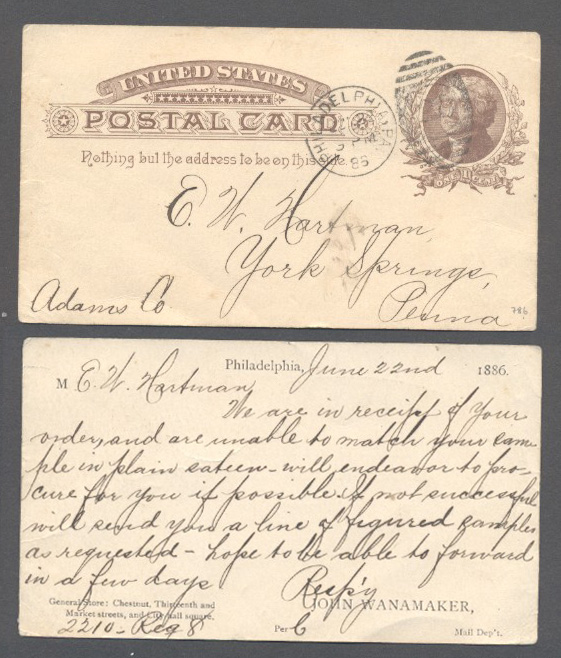 UNITED STATES
POSTAL CARD
Nothing but the address to be on this side.
PHILADELPHIA, PA.
86
ONE CENT
E. W. Hartman
York Springs,
Adams Co
Penna
786
Philadelphia, June 22nd 1886.
M E. W. Hartman
We are in receipt of your
order, and are unable to match your sam-
ple in plain sateen - will endeavor to pro-
cure for you if possible. If not successful
will send you a line of figured samples
as requested - hope to be able to forward
in a few days
Resp'y
General Store: Chestnut, Thirteenth and
Market streets, and City hall square,
JOHN WANAMAKER,
2210 - Reg 8
Per C
Mail Dep't.